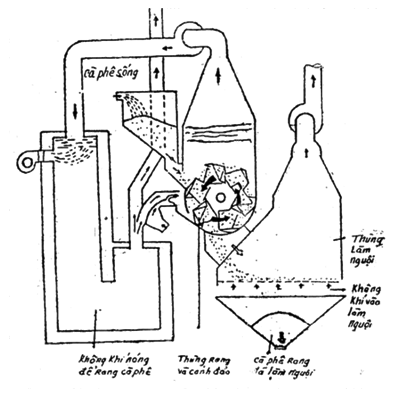 cà phê sống
Thùng
làm
nguội
Không
khí vào
làm
nguội
Không khí nóng
để rang cà phê
Thùng rang
và cánh đảo
cà phê rang
đã làm nguội